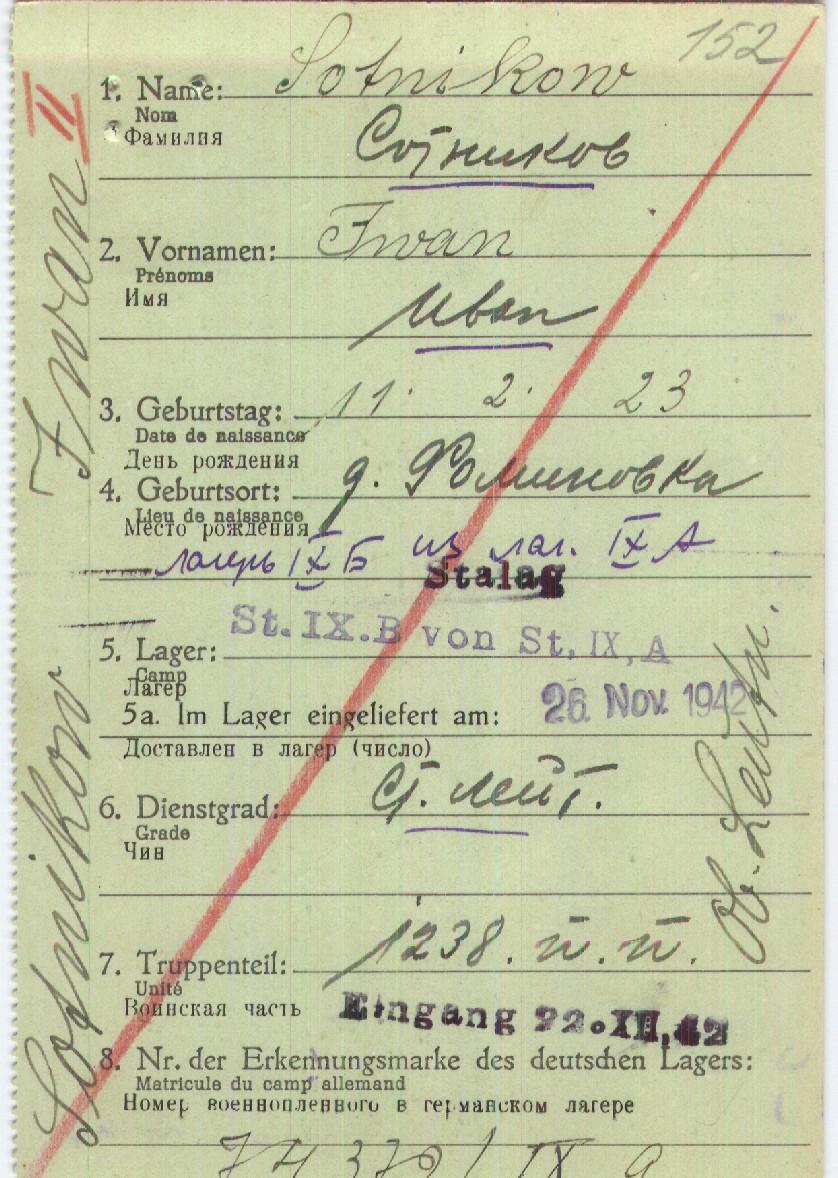 152
1. Name: Sotnikow
Nom
Фамилия
Сотников
2. Vornamen: Iwan
Prénoms
Имя
Иван
3. Geburtstag: 11. 2. 23
Date de naissance
День рождения
4. Geburtsort: д. Фоминовка
Lieu de naissance
Место рождения
лагерь IX Б из лаг. IX А
Stalag
St. IX. B von St, IX, A
5. Lager:
Camp
Лагерь
5a. Im Lager eingeliefert am: 26. Nov. 1942
Доставлен в лагерь (число)
6. Dienstgrad: Ст. лейт.
Grade
Чин
7. Truppenteil: 1238. п. п.
Unité
Воинская часть
Eingang 22. XII, 42
8. Nr. der Erkennungsmarke des deutschen Lagers:
Matricule du camp allemand
Номер военнопленного в германском лагере
IX a
Sotnikow Iwan II
Ob. Leutn.